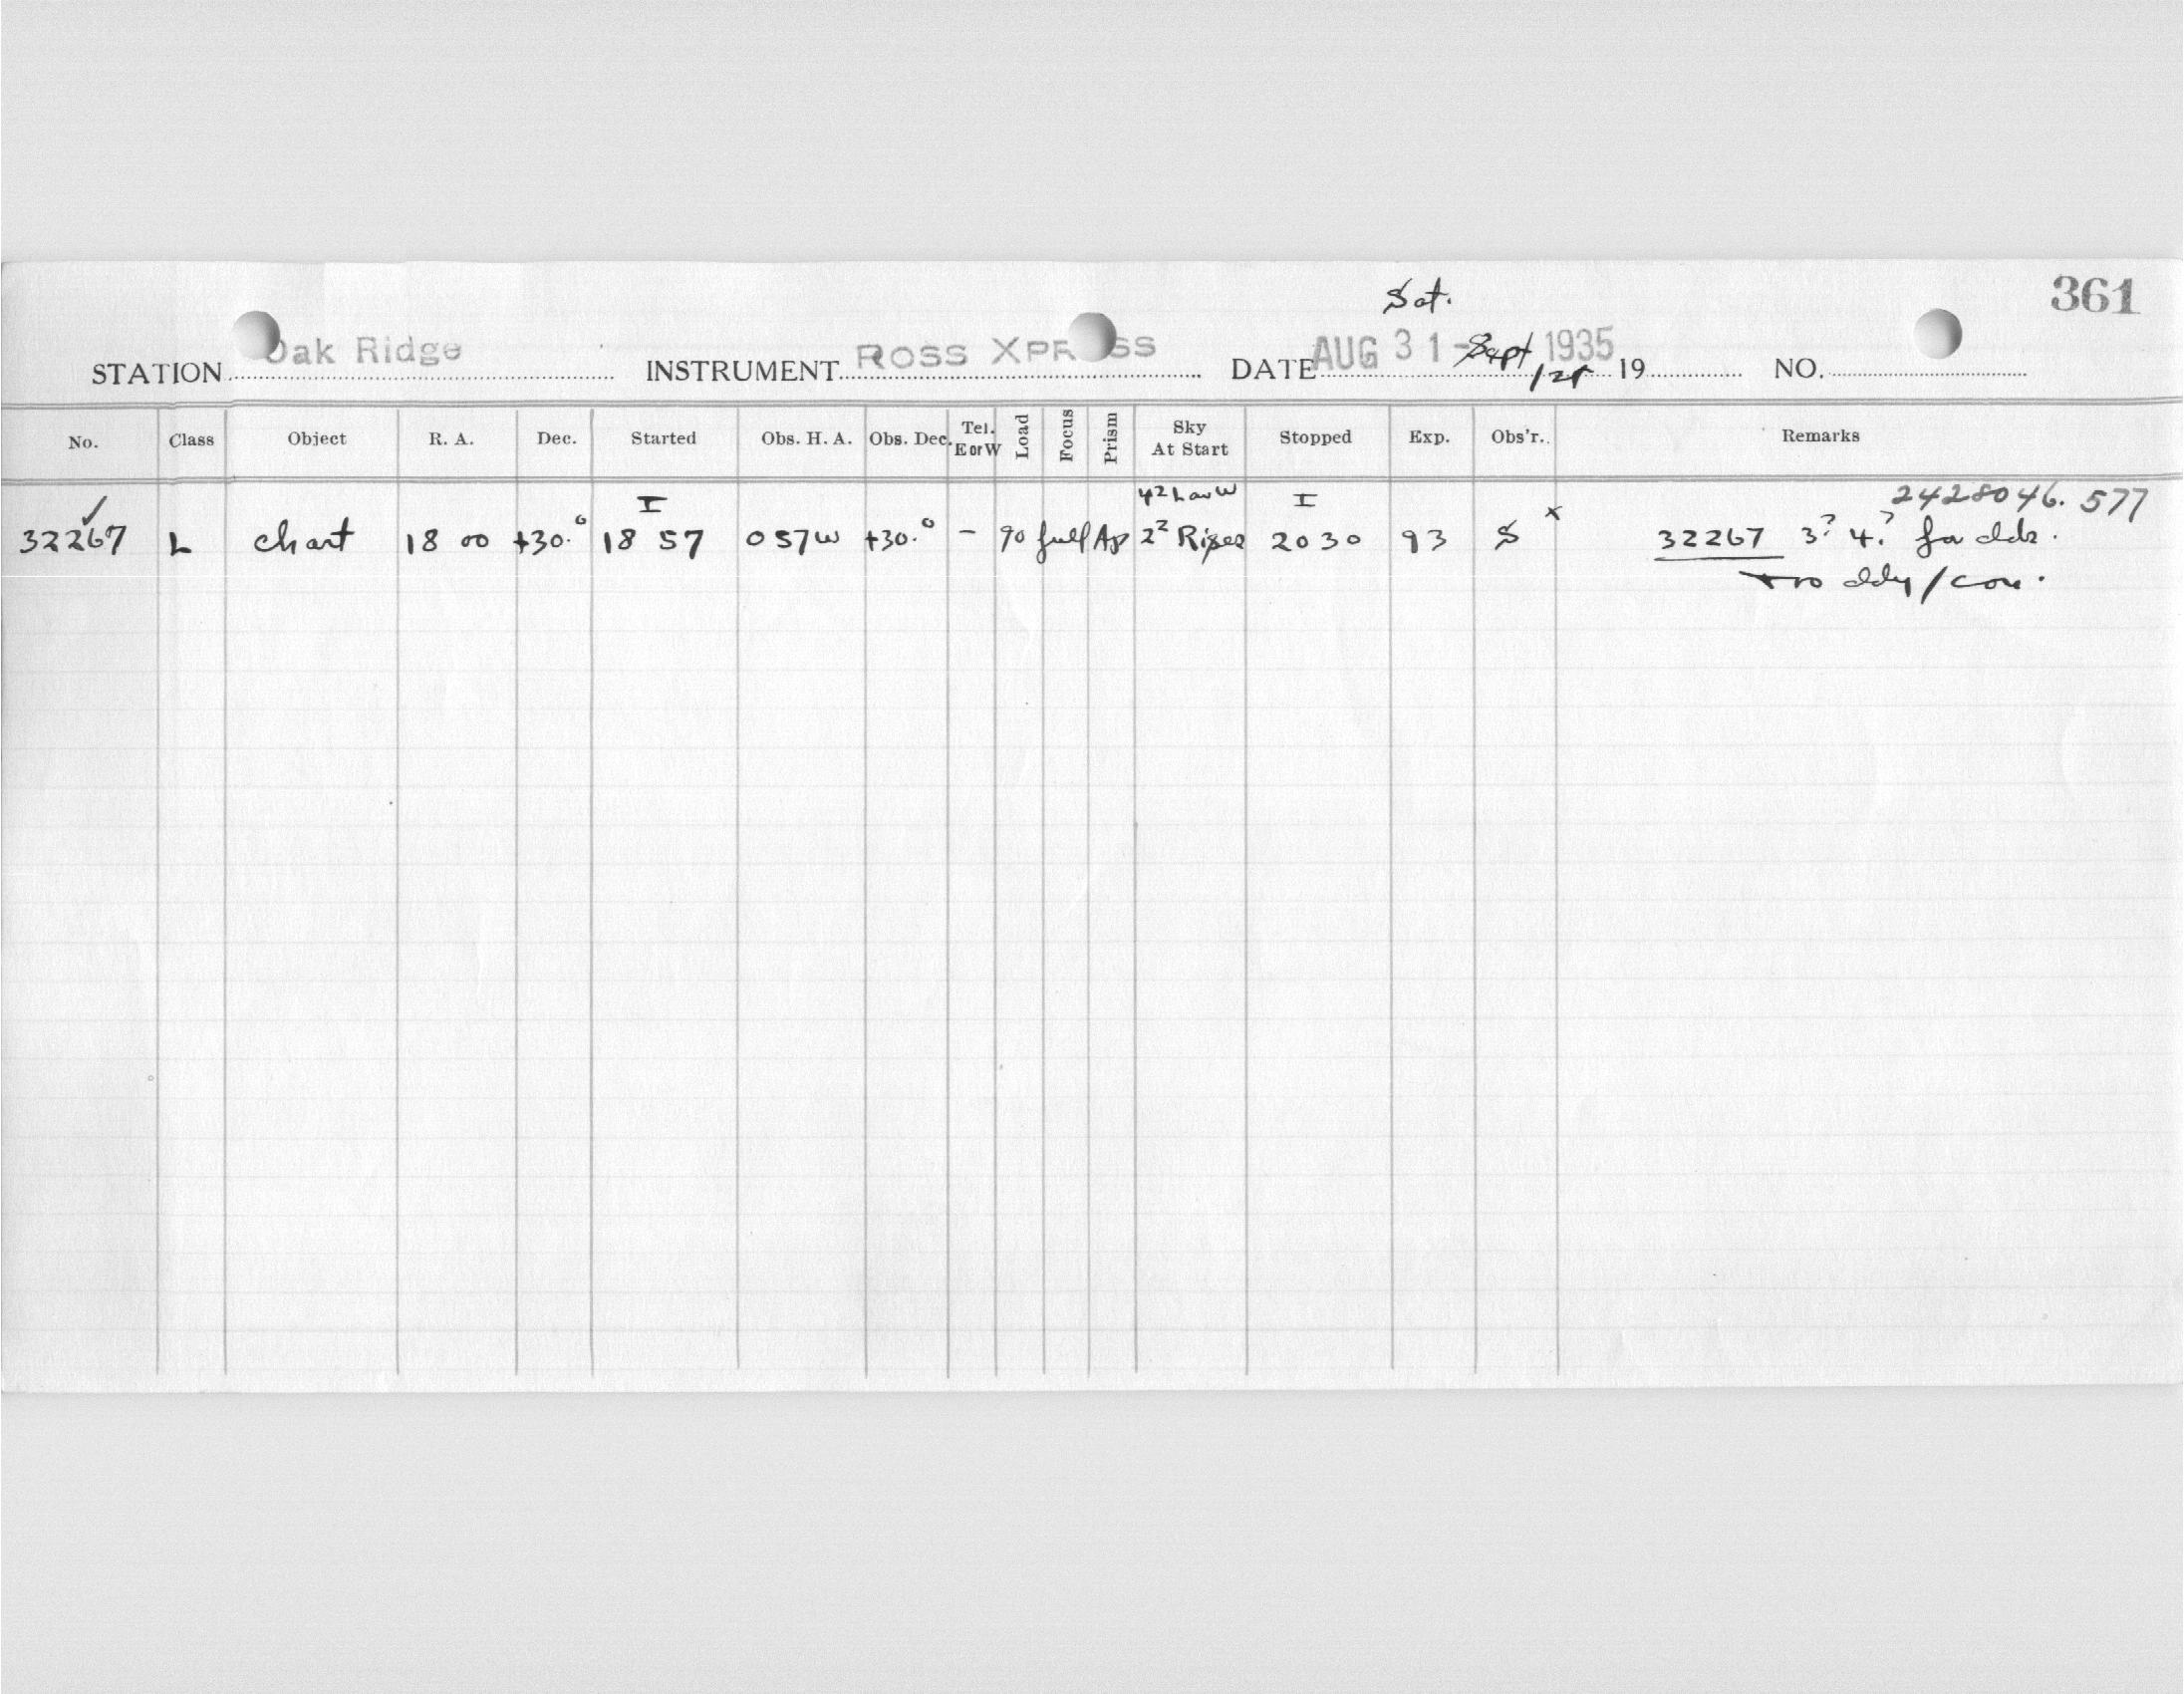 Sat.
361
STATION Oak Ridge INSTRUMENT ROSS XPR SS DATE AUG 31 - Sept 1st 1935 19 NO.
No. Class Object R. A. Dec. Started Obs. H. A. Obs. Dec. Tel. E or W Load Focus Prism Sky At Start Stopped Exp. Obs'r. Remarks
I I 2428046.577
32267 L chart 18 00 +30.° 18 57 0 57 W +30.° – 90 full Ap 2² 20 30 93 S x 32267 3? 4?